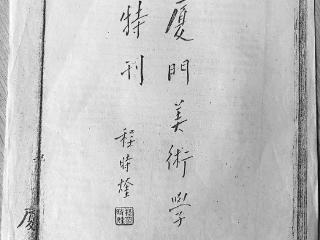 厦門美術學
特刊
程時煃
厦